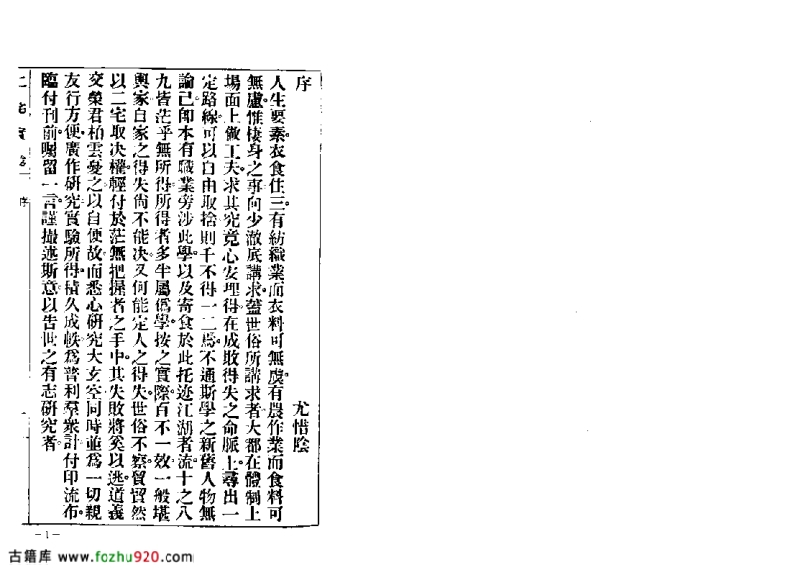 序
尤惜陰
人生要素。衣食住三。有紡織業而衣料可無虞。有農作業而食料可
無慮。惟棲身之事。向少澈底講求。蓋世俗所講求者。大都在體獨上
場面上做工夫。求其究竟心安理得。在成敗得失之命脈上。尋出一
定路線。可以自由取捨。則千不得一二焉。不通斯學之新舊人物無
論已。即本有職業。旁涉此學。以及寄食於此。托迹江湖者流。十之八
九。皆茫乎無所得。所得者多半屬僞學。按之實際。百不一效。一般堪
輿家。自家之得失尙不能决。又何能定人之得失。世俗不察。貿貿然
以二宅取决權。輕付於茫無把握者之手中。其失敗將奚以逃。道義
交榮君柏雲憂之。以自便故。而悉心研究大玄空。同時並爲一切親
友行方便。廣作研究實驗。所得積久成帙。爲普利羣衆計。付印流布。
臨付刊前。囑留一言。謹撮述斯意。以告世之有志研究者。
二宅實驗 序
一
—1—
古籍库 www.fozhu920.com